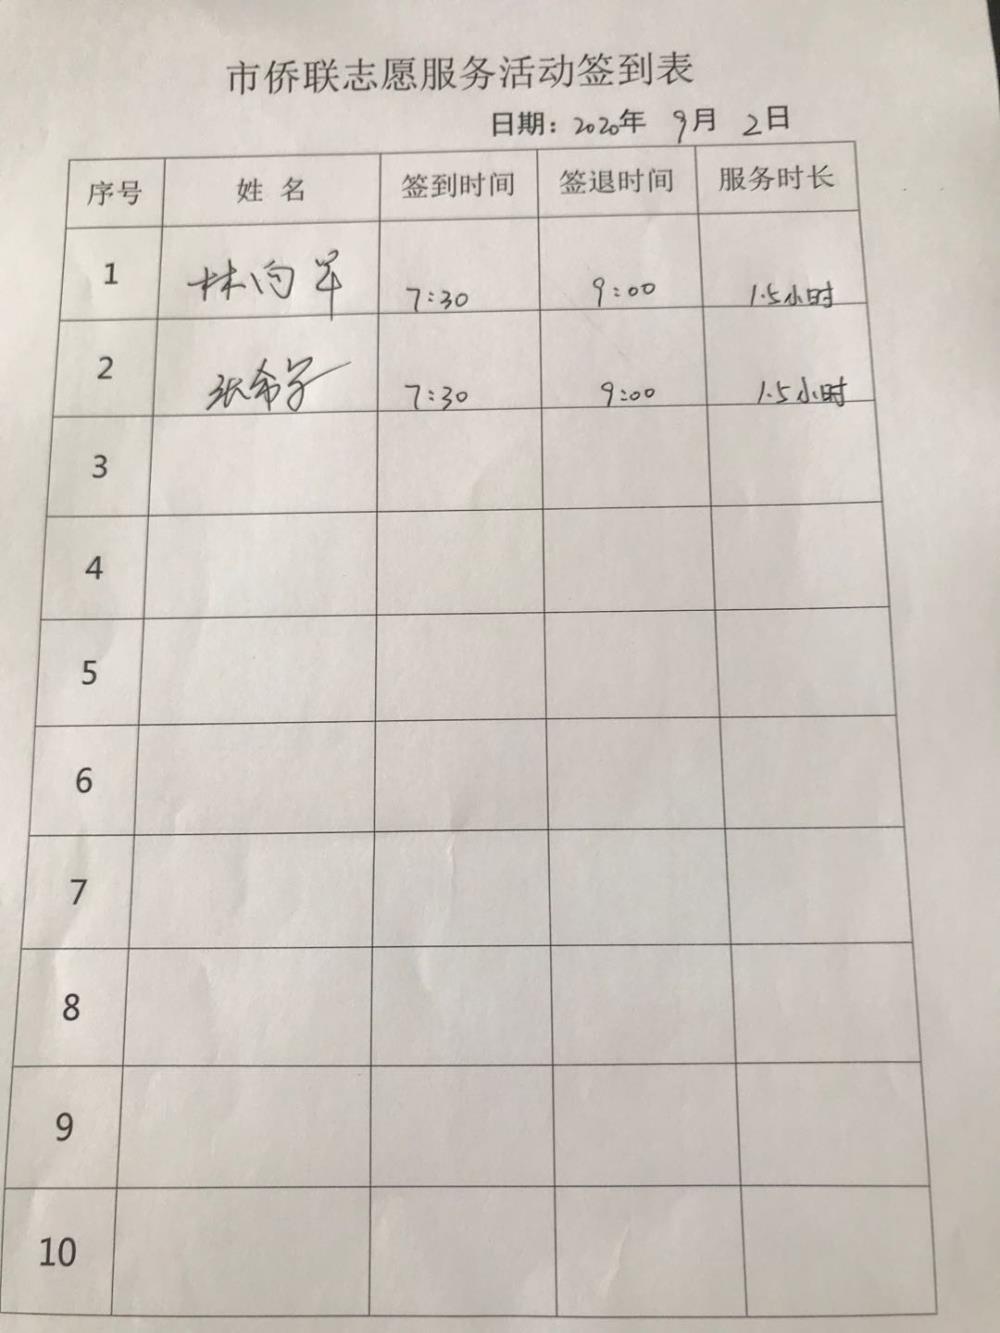 市侨联志愿服务活动签到表
日期：2020年 9月 2日
序号 姓 名 签到时间 签退时间 服务时长
1 林向军 7:30 9:00 1.5小时
2 张希 7:30 9:00 1.5小时
3
4
5
6
7
8
9
10